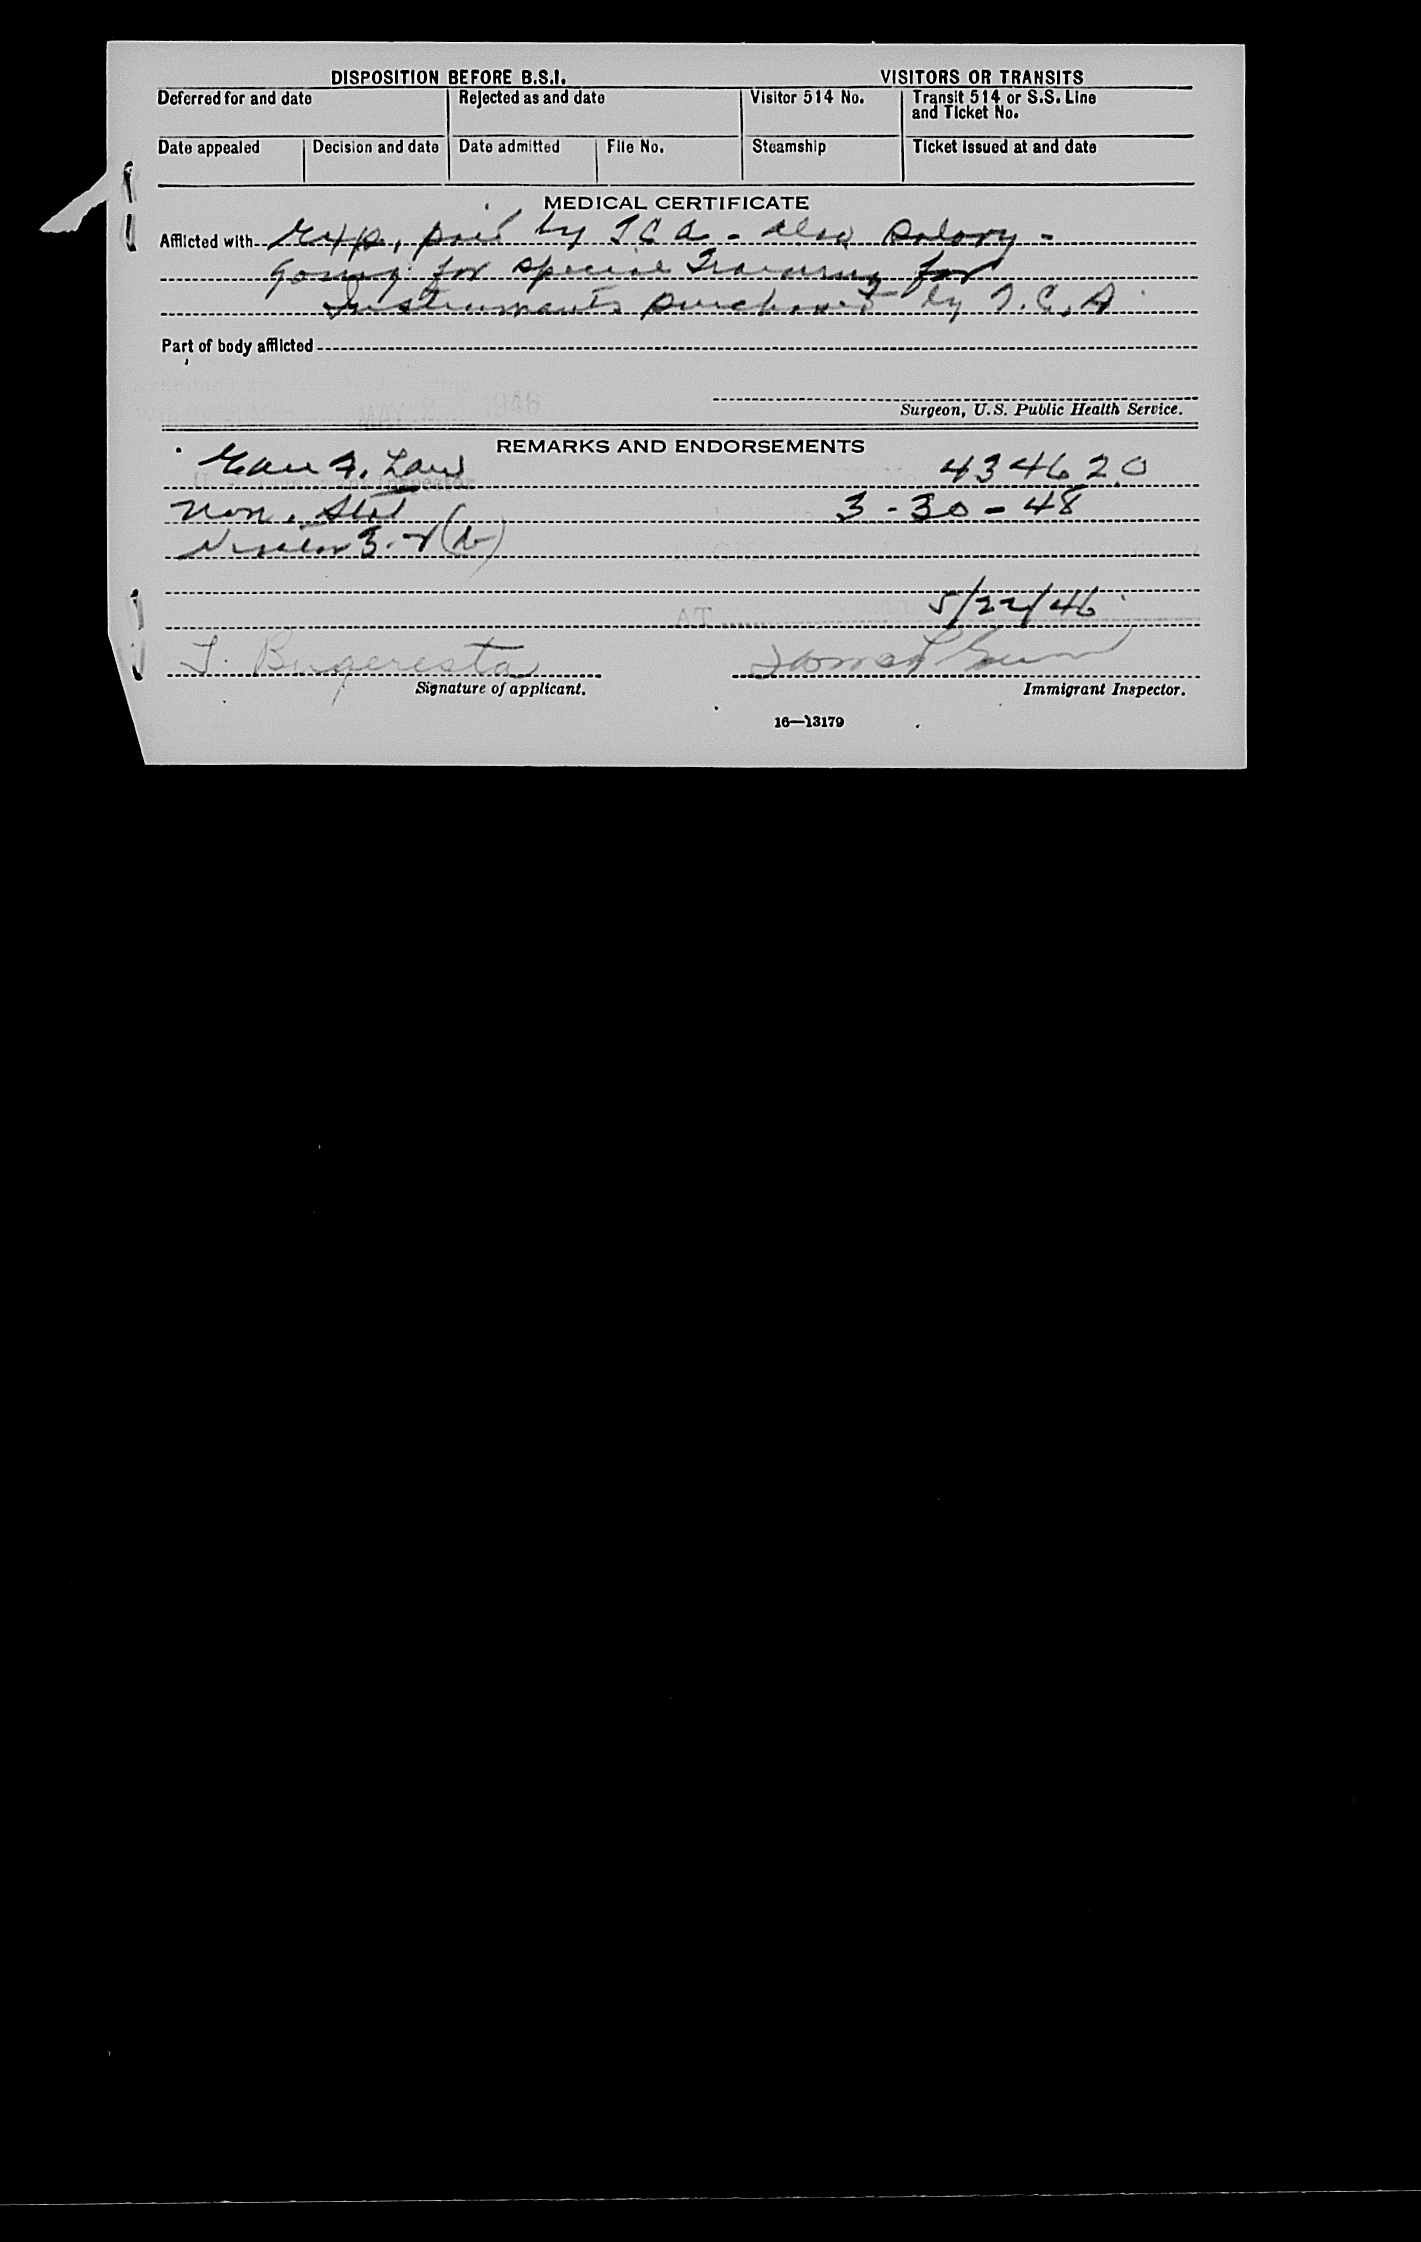 DISPOSITION BEFORE B.S.I. VISITORS OR TRANSITS
Deferred for and date Rejected as and date Visitor 514 No. Transit 514 or S.S. Line and Ticket No.
Date appealed Decision and date Date admitted File No. Steamship Ticket issued at and date
MEDICAL CERTIFICATE
Afflicted with Exp. paid by TCA - also salary -
going for special Training for
Instruments purchased by T.C.A
Part of body afflicted
Surgeon, U.S. Public Health Service.
REMARKS AND ENDORSEMENTS
434620
Non. Stat 3-30-48
3-2(b)
5/22/46
Signature of applicant. Immigrant Inspector.
16—13179